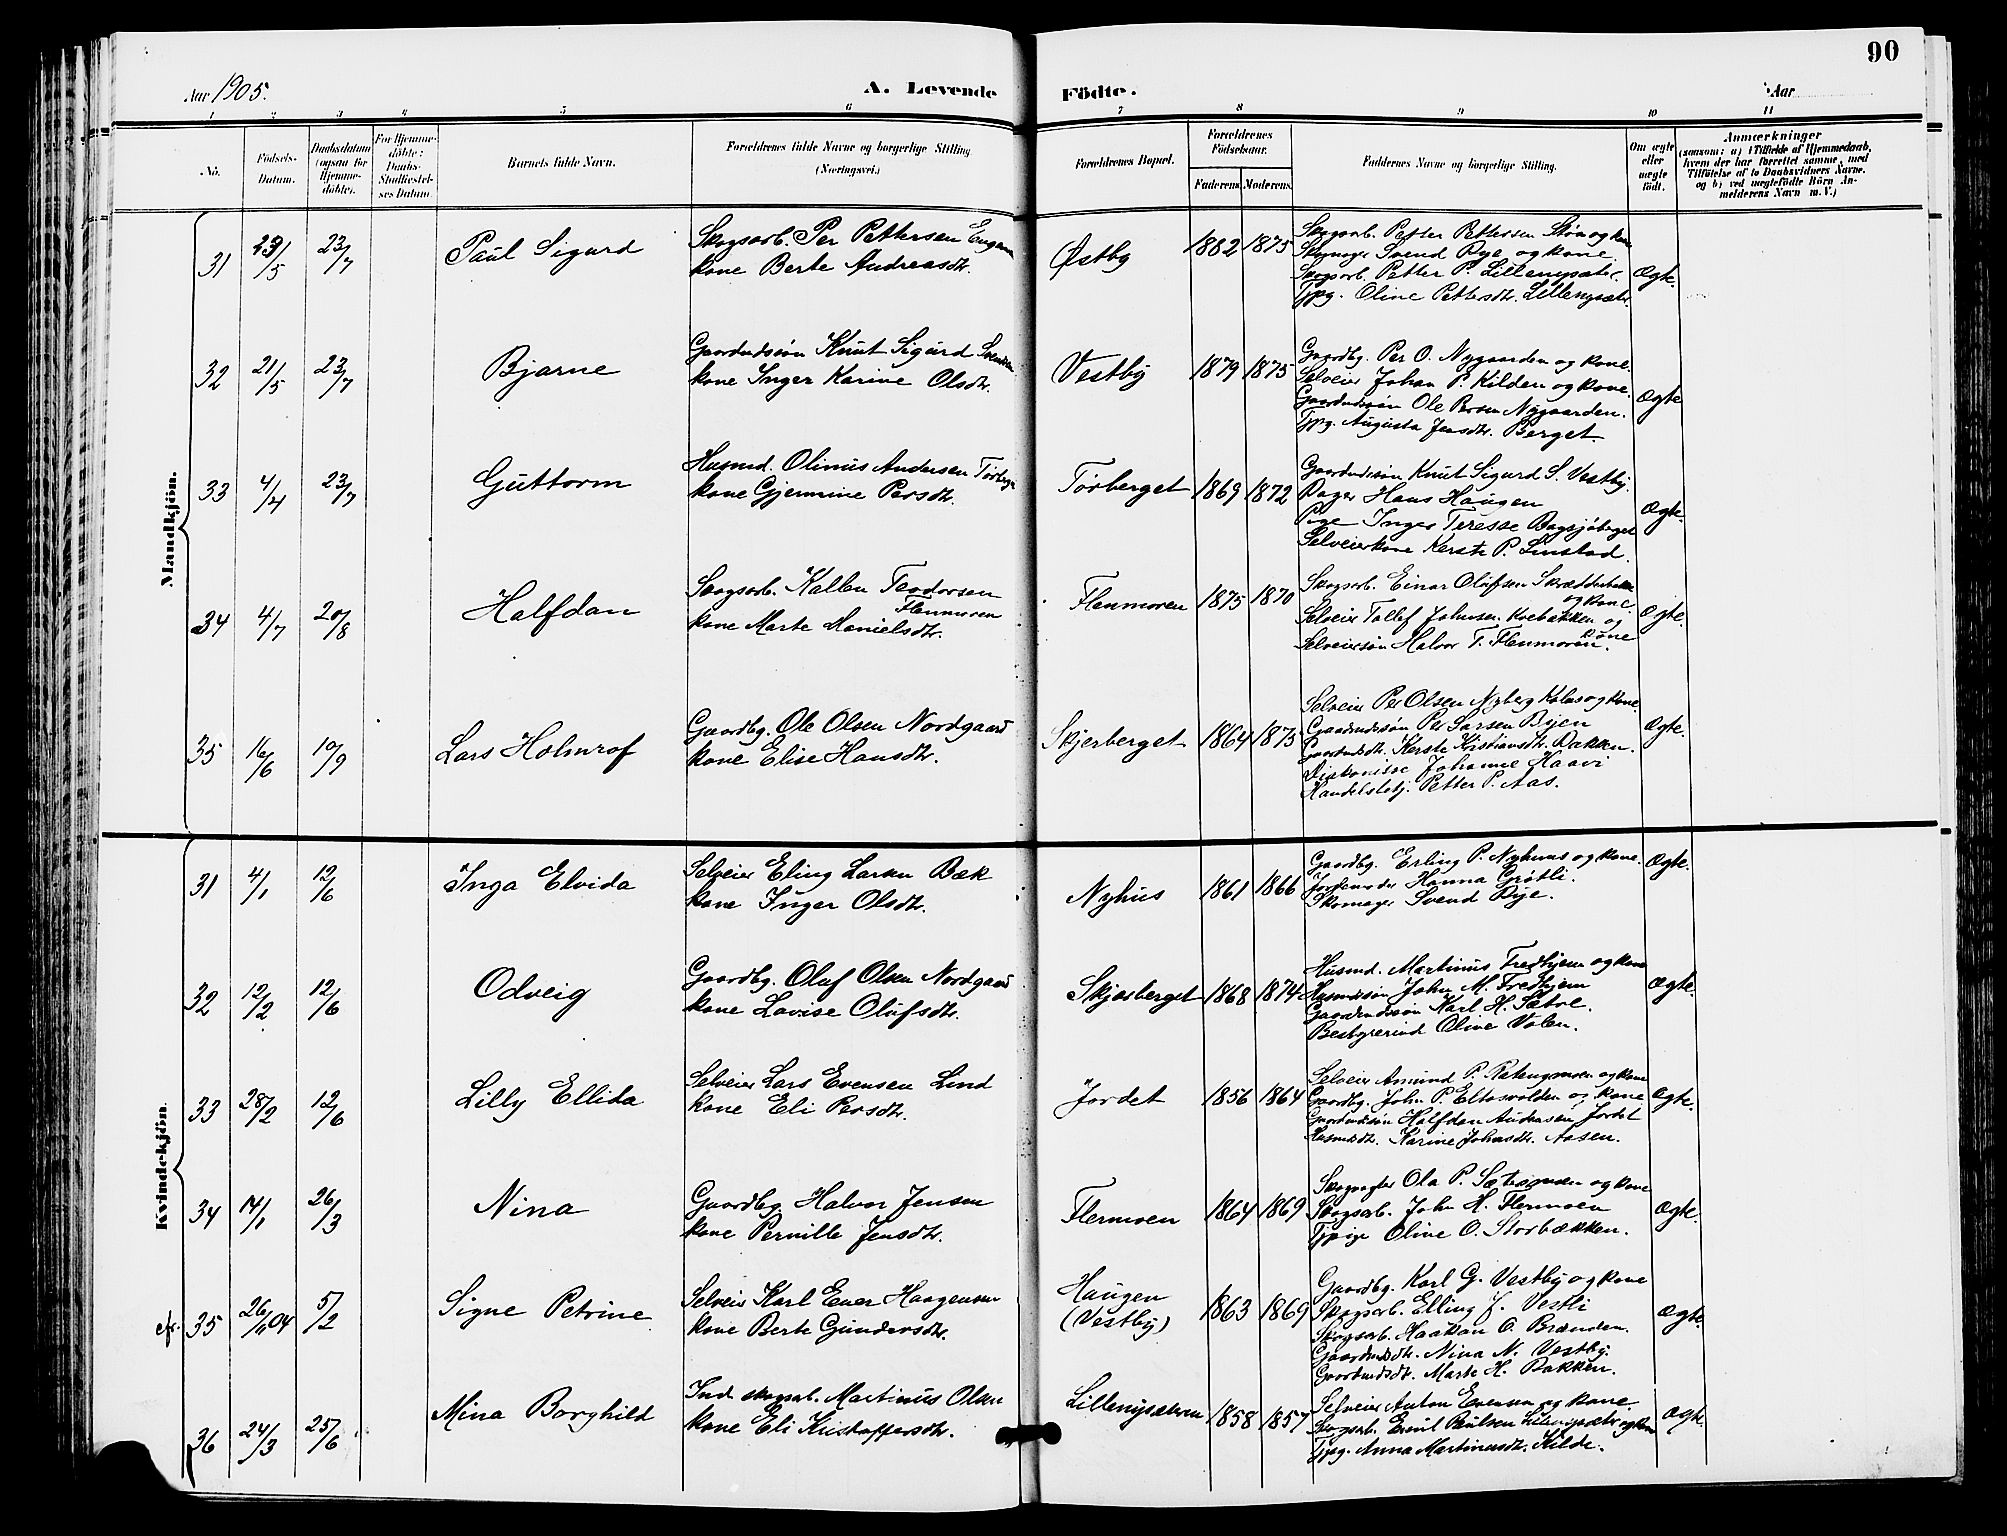 90
Aar 1905.
A. Levende Födte.
Aar
1 2 3 4 5 6 7 8 9 10 11
No.
Födsels-Datum.
Daabsdatum (ogsaa for Hjemme-döbte).
For Hjemme-döbte: Daabs-Stadfæstel-ses Datum.
Barnets fulde Navn.
Forældrenes fulde Navne og borgerlige Stilling (Næringsvei.)
Forældrenes Bopæl.
Forældrenes Födselsaar.
Faderens. Moderens.
Faddernes Navne og borgerlige Stilling.
Om ægte eller uægte födt.
Anmærkninger
(saasom: a) i Tilfælde af Hjemmedaab, hvem der har forrettet samme, med Tilföielse af to Daabsvidners Navne, og b) ved uægtefödte Börn An-melderens Navn m. V.)
Mandkjön.
31 23/5 23/7 Paul Sigurd
Skogsarb. Per Pettersen
kone Berte Andreasdtr.
Østby 1882 1875
Skogsarb. Petter Pettersen Støa og kone
Skomager Svend Rye og kone.
Skogsarb. Petter P. Lillengsæter.
Tjpg. Oline Pettersdtr. Lillengsæter.
Ægte.
32 21/5 23/7 Bjarne
Gaardmdssøn Knut Sigurd Svendsen
kone Inger Karine Olsdtr.
Vestby 1879 1875
Gaardbg. Per O. Nygaarden og kone.
Selveier Johan P. Kilden og kone.
Gaardmdssøn Ole Persen Nygaarden.
Tjpg. Augusta Jensdtr. Berget
Ægte
33 4/4 23/7 Guttorm
Husmd. Olinus Andersen Tørberget
kone Gjermine Persdtr.
Tørberget 1869 1872
Gaardmdssøn Knut Sigurd S. Vestby.
Hans Haugen
Pige Inger Teresse
Selveierkone Kerste P. Linstad.
Ægte.
34 4/7 20/8 Halfdan
Skogsarb. Kallen Teodorsen
Flenmoren
kone Marte Danielsdtr.
Flenmoren 1875 1870
Skogsarb. Einar Olufsen Skrædderbakken
og kone.
Selveier Tollef Johnsen Kvebakken og
kone
Selveiersøn Halvor T. Flenmoren.
Ægte.
35 16/6 10/9 Lars Holmrof
Gaardbg. Ole Olsen Nordgaard
kone Elise Hansdtr.
Skjerberget 1864 1873
Selveier Per Olsen Nyberg Kolos og kone.
Gaardmdssøn Per Larsen Byen
Gaardmdsdtr. Kerste Kristiansdtr. Bakken.
Diakonisse Johanne Haavi
Handelsbetj. Petter P. Aas.
Ægte.
Kvindekjön.
31 4/1 12/6 Inga Elvida
Selveier Eling Larsen Bæk
kone Inger Olsdtr.
Nyhus 1861 1866
Gaardbg. Erling P. Nyhuus og kone.
Jordemoder Hanna Grøtli.
Skomager Svend Rye.
Ægte.
32 12/2 12/6 Odveig
Gaardbg. Oluf Olsen Nordgaard
kone Lovise Olufsdtr.
Skjærberget 1868 1874
Husmd. Martinus Fredhjem og kone
Husmdssøn John M. Fredhjem
Gaardmdssøn Karl H. Sætre.
Bestyrerind Oline Volen.
Ægte.
33 28/2 12/6 Lilly Ellida
Selveier Lars Evensen Lind
kone Eli Persdtr.
Jordet 1856 1864
Selveier Amund P. og kone
Gaardbg. John P. Eltesvolden og kone
Gaardmdssøn Halfdan Andersen Jordet
Husmdsdtr. Karine Johnsdtr. Aasen.
Ægte.
34 14/1 26/3 Nina
Gaardbg. Halvor Jensen
kone Pernille Jensdtr.
Flermoen 1864 1869
Skogvogter Ola P. Sætersmoen og kone
Skogsarb. John H. Flermoen
Tjpige Oline O. Storbækken.
Ægte.
cfr. 35 26/11 04 5/2 Signe Petrine
Selveier Karl Ener Haagensen
kone Berte Gundersdtr.
Haugen
(Vestby)
1863 1869
Gaardbg. Karl G. Vestby og kone
Skogsarb. Elling J. Vestli
Skogsarb. Haakan O. Brænden.
Gaardmdsdtr. Nina N. Vestby.
Gaardmdsdtr. Marte H. Bakken.
Ægte.
36 24/3 25/6 Mina Borghild
Ind. skogsarb. Martinus Olsen
kone Eli Kristoffersdtr.
Lillengsæteren 1858 1857
Selveier Anton Evensen og kone.
Skogsarb. Emil Paulsen Lillengsæter og kone
Tjpg. Anna Martinusdtr. Kilde.
Ægte.